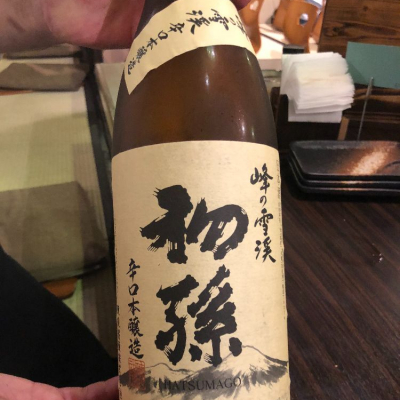 雪渓
辛口本醸造
峰の雪渓
初孫
辛口本醸造
HATSUMAGO